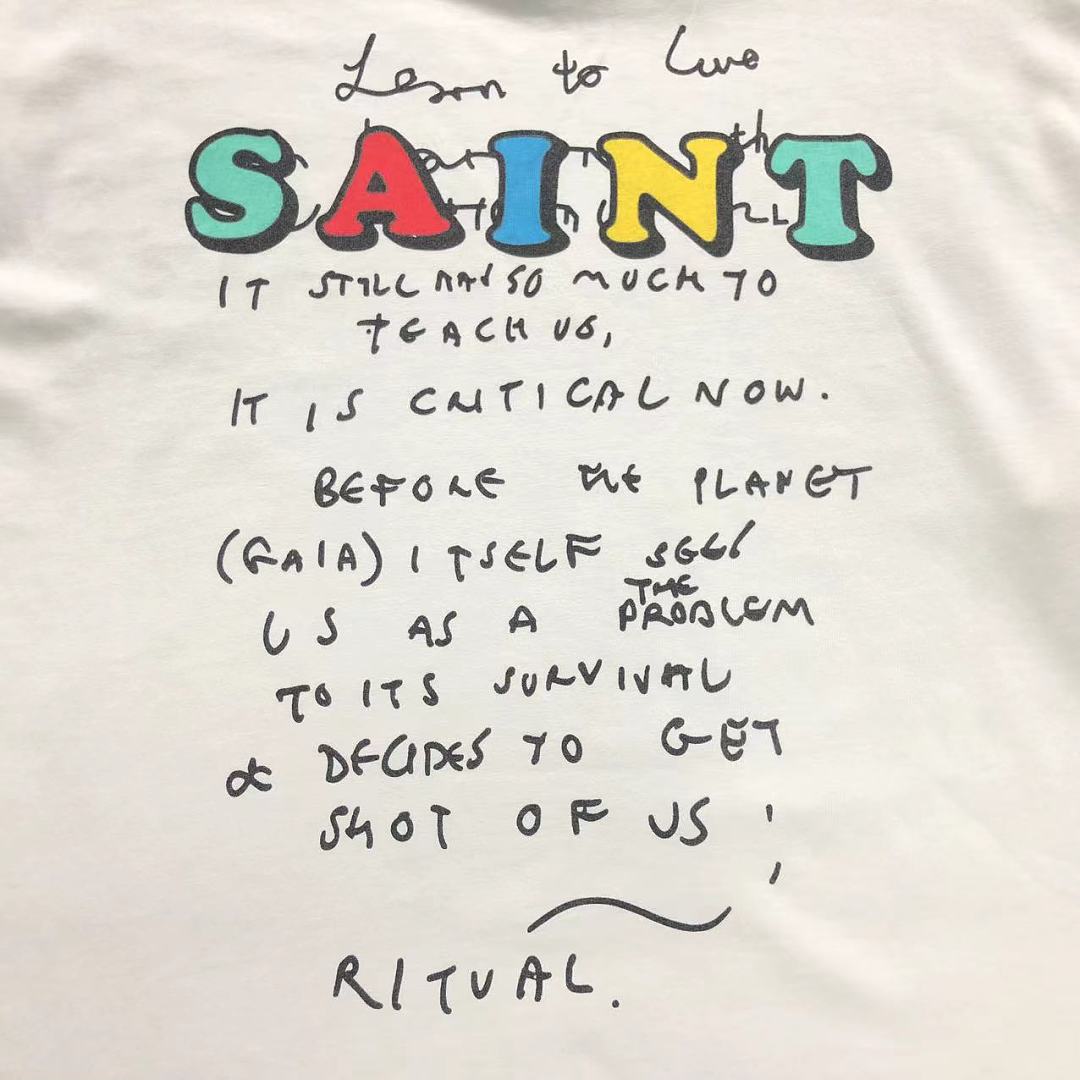 Learn to Live
SAINT
IT STILL HAS SO MUCH TO
TEACH US,
IT IS CRITICAL NOW.
BEFORE THE PLANET
(GAIA) ITSELF SEES
THE
US AS A PROBLEM
TO ITS SURVIVAL
& DECIDES TO GET
SHOT OF US !
RITUAL.